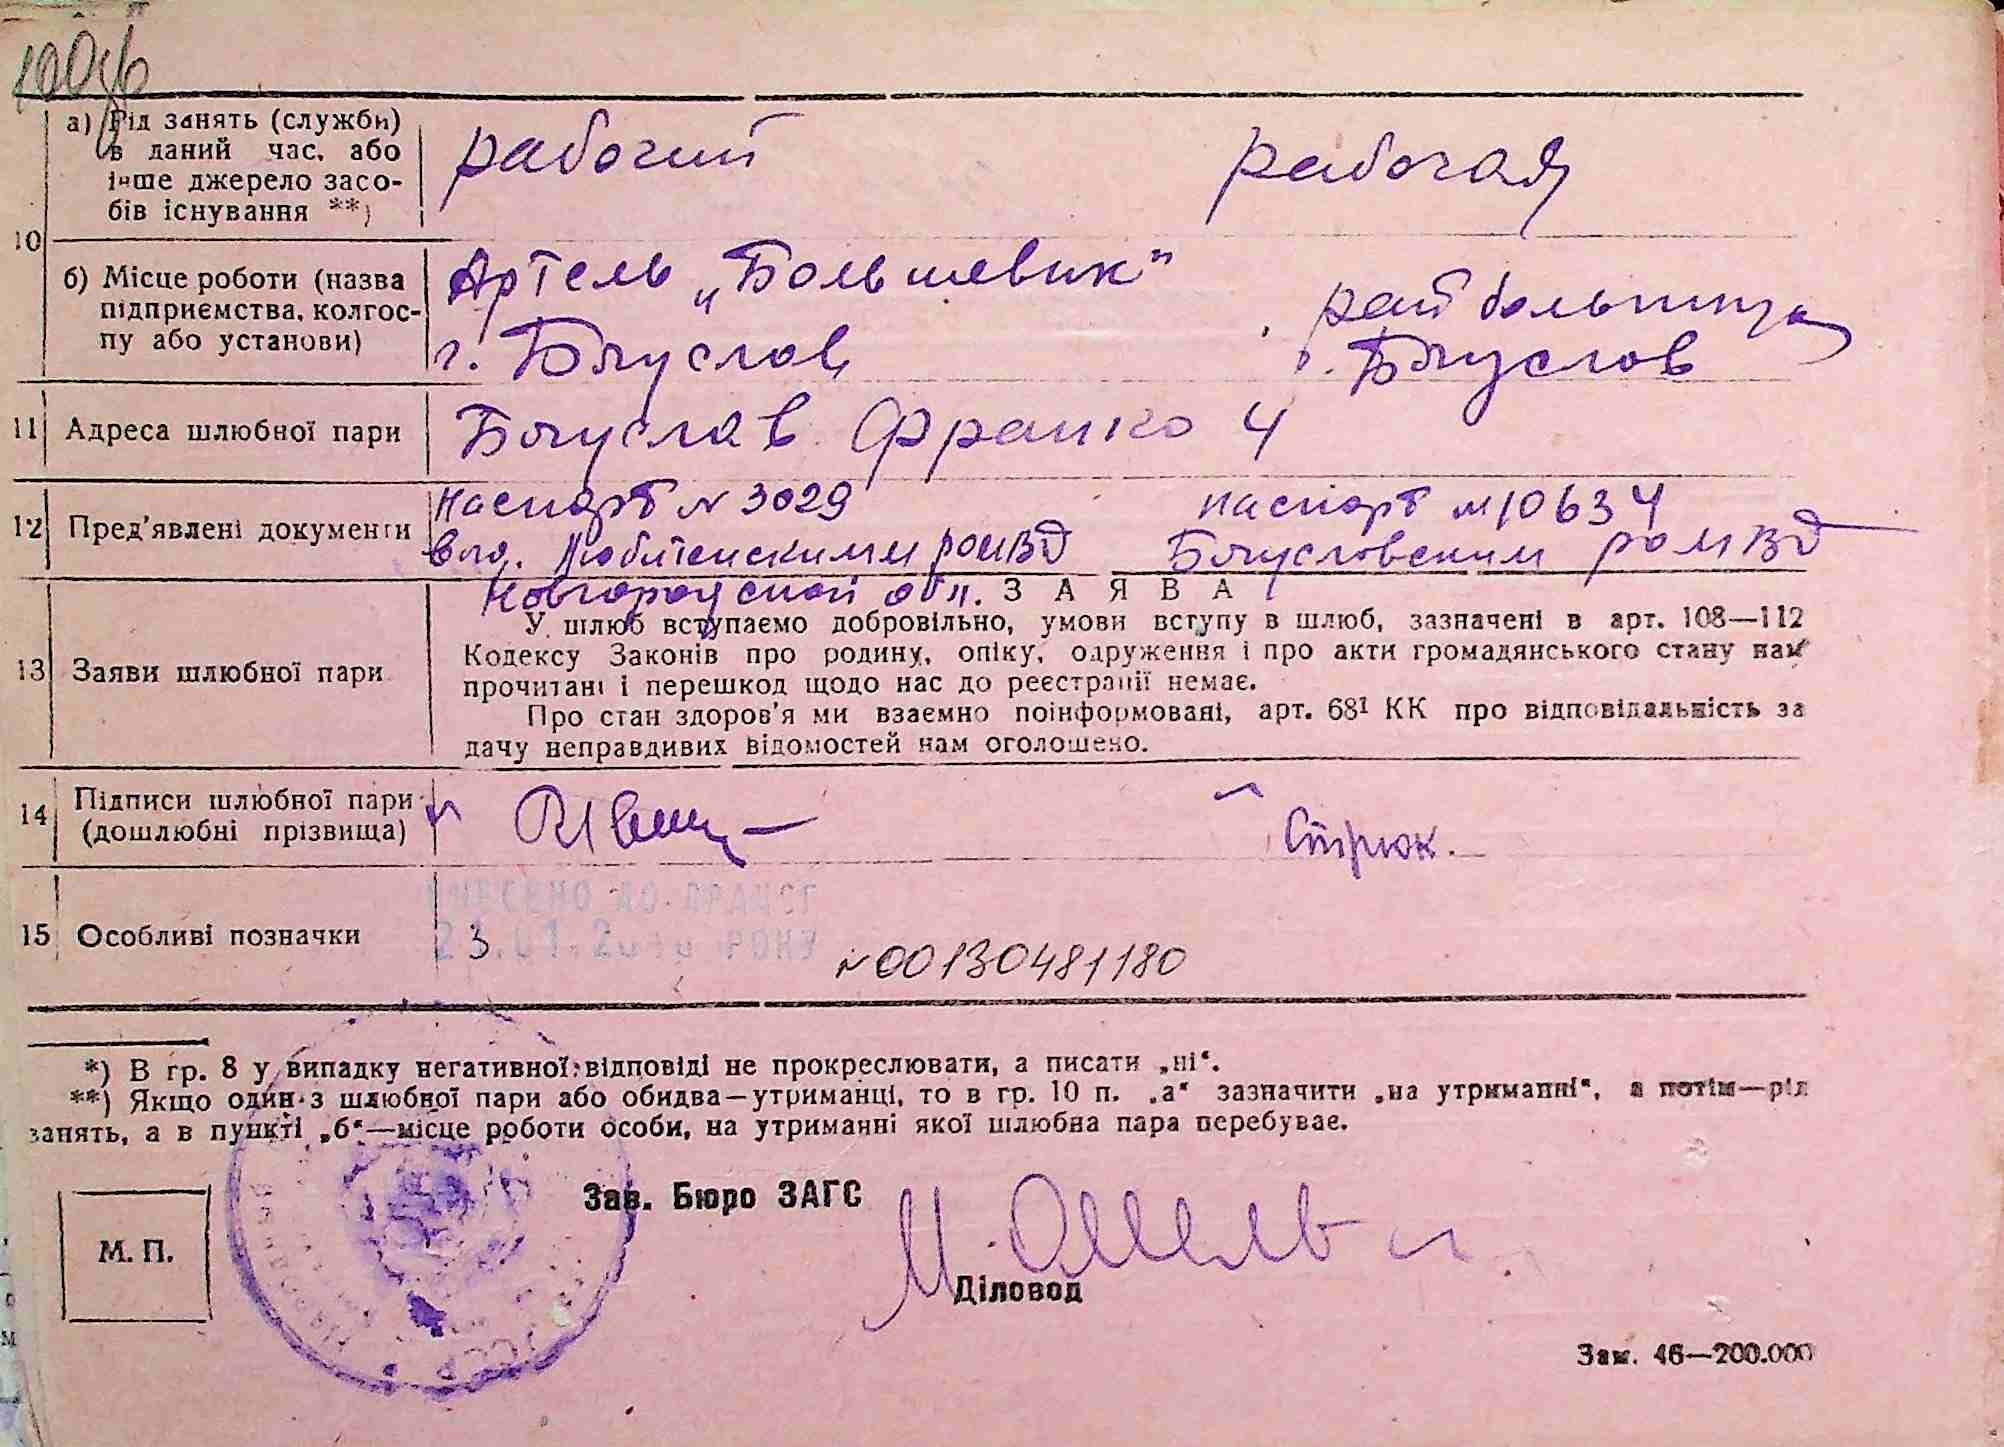 а) Рід занять (служби)
в даний час, або
інше джерело засо-
бів існування **)
рабочий рабочая
10
б) Місце роботи (назва
підприємства, колгос-
пу або установи)
Артель „Большевик"
г. Богуслав
райбольница
г. Богуслов
11 Адреса шлюбної пари
Богуслав Франко 4
12 Пред'явлені документи
паспорт № 3029 паспорт № 10634
выд. Любитенскимм РОМВД Богусловским РОМВД
Новгородской обл.
ЗАЯВА
13 Заяви шлюбної пари
У шлюб вступаємо добровільно, умови вступу в шлюб, зазначені в арт. 108—112
Кодексу Законів про родину, опіку, одруження і про акти громадянського стану нам
прочитані і перешкод щодо нас до реєстрації немає.
Про стан здоров'я ми взаємно поінформовані, арт. 68¹ КК про відповідальність за
дачу неправдивих відомостей нам оголошено.
14 Підписи шлюбної пари
(дошлюбні прізвища)
Стрюк.
15 Особливі позначки
ВНЕСЕНО ДО ДРАЦСГ
РОКУ
№00130481180
*) В гр. 8 у випадку негативної відповіді не прокреслювати, а писати „ні".
**) Якщо один з шлюбної пари або обидва—утриманці, то в гр. 10 п. „а" зазначити „на утриманні", а потім—рід
занять, а в пункті „б"—місце роботи особи, на утриманні якої шлюбна пара перебуває.
Зав. Бюро ЗАГС
М. П.
Діловод
Зам. 46—200.000